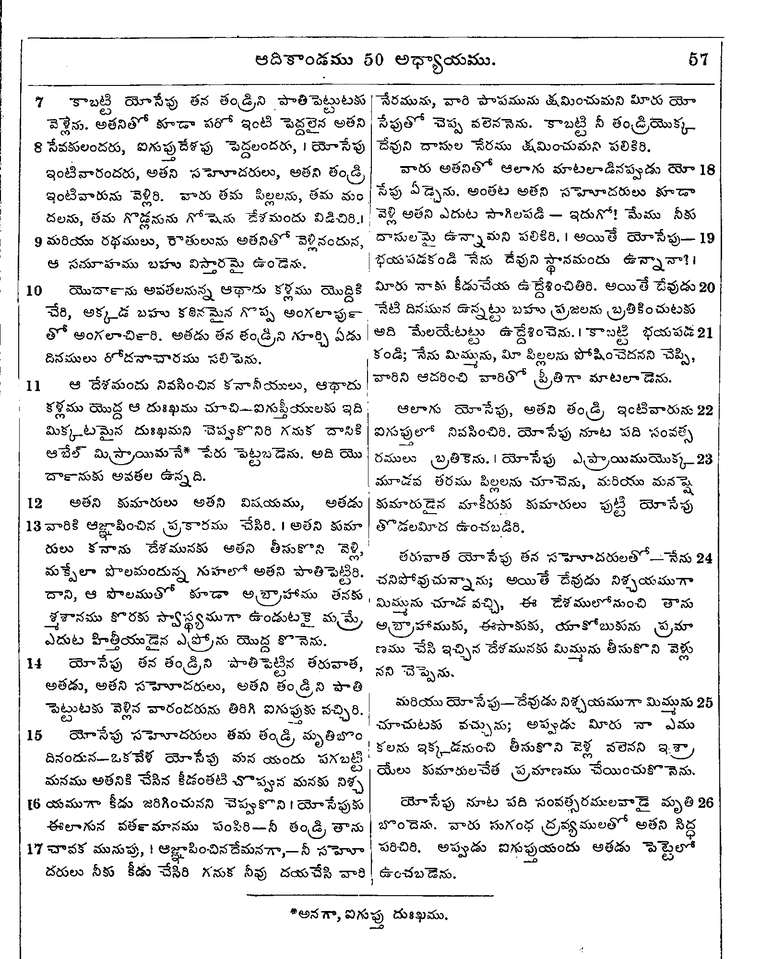 ఆదికాండము 50 అధ్యాయము. 57
7 కాబట్టి యోసేపు తన తండ్రిని పాతిపెట్టుటకు
వెళ్లెను. అతనితో కూడా పరో ఇంటి పెద్దలైన అతని
8 సేవకులందరు, ఐగుప్తుదేశపు పెద్దలందరు, । యోసేపు
ఇంటివారందరు, అతని సహోదరులు, అతని తండ్రి
ఇంటివారును వెళ్లిరి. వారు తమ పిల్లలను, తమ మం
దలను, తమ గొడ్లనును గోషెను దేశమందు విడిచిరి.।
9 మరియు రథములు, రౌతులును అతనితో వెళ్లినందున,
ఆ సమూహము బహు విస్తారమై ఉండెను.
10 యొర్దాను అవతలనున్న ఆథాదు కళ్లము యొద్దికి
చేరి, అక్కడ బహు కఠినమైన గొప్ప అంగలార్పు
తో అంగలార్చిరి. అతడు తన తండ్రిని గూర్చి ఏడు
దినములు రోదనాచారము సలిపెను.
11 ఆ దేశమందు నివసించిన కనానీయులు, ఆథాదు
కళ్లము యొద్ద ఆ దుఃఖము చూచి—ఐగుప్తీయులకు ఇది
మిక్కటమైన దుఃఖమని చెప్పుకొనిరి గనుక దానికి
ఆబేల్ మిస్రాయిమనే* పేరు పెట్టబడెను. అది యొ
ర్దానుకు అవతల ఉన్నది.
12 అతని కుమారులు అతని విషయము, అతడు
13 వారికి ఆజ్ఞాపించిన ప్రకారము చేసిరి. । అతని కుమా
రులు కనాను దేశమునకు అతని తీసుకొని వెళ్లి,
మక్పేలా పొలమందున్న గుహలో అతని పాతిపెట్టిరి.
దాని, ఆ పొలముతో కూడా అబ్రాహాము తనకు
శ్మశానము కొరకు స్వాస్థ్యముగా ఉండుటకై మమ్రే
ఎదుట హిత్తీయుడైన ఎఫ్రోను యొద్ద కొనెను.
14 యోసేపు తన తండ్రిని పాతిపెట్టిన తరువాత,
అతడు, అతని సహోదరులు, అతని తండ్రిని పాతి
పెట్టుటకు వెళ్లిన వారందరును తిరిగి ఐగుప్తుకు వచ్చిరి.
15 యోసేపు సహోదరులు తమ తండ్రి మృతిబొం
దినందున—ఒకవేళ యోసేపు మన యందు పగబట్టి
మనము అతనికి చేసిన కీడంతటి చొప్పున మనకు నిశ్చ
16 యముగా కీడు జరిగించునని చెప్పుకొని । యోసేపుకు
ఈలాగున వర్తమానము పంపిరి—నీ తండ్రి తాను
17 చావక మునుపు, । ఆజ్ఞాపించినదేమనగా,—నీ సహో
దరులు నీకు కీడు చేసిరి గనుక నీవు దయచేసి వారి
నేరమును, వారి పాపమును క్షమించుమని మీరు యో
సేపుతో చెప్ప వలెననెను. కాబట్టి నీ తండ్రియొక్క
దేవుని దాసుల నేరము క్షమించుమని పలికిరి.
వారు అతనితో ఆలాగు మాటలాడినప్పుడు యో 18
సేపు ఏడ్చెను. అంతట అతని సహోదరులు కూడా
వెళ్లి అతని ఎదుట సాగిలపడి — ఇదుగో! మేము నీకు
దాసులమై ఉన్నామని పలికిరి. । అయితే యోసేపు— 19
భయపడకండి నేను దేవుని స్థానమందు ఉన్నానా?।
మీరు నాకు కీడుచేయ ఉద్దేశించితిరి. అయితే దేవుడు 20
నేటి దినమున ఉన్నట్టు బహు ప్రజలను బ్రతికించుటకు
అది మేలయేటట్టు ఉద్దేశించెను. । కాబట్టి భయపడ 21
కండి; నేను మిమ్మును, మీ పిల్లలను పోషించెదనని చెప్పి,
వారిని ఆదరించి వారితో ప్రీతిగా మాటలాడెను.
ఆలాగు యోసేపు, అతని తండ్రి ఇంటివారును 22
ఐగుప్తులో నివసించిరి. యోసేపు నూట పది సంవత్స
రములు బ్రతికెను. । యోసేపు ఎఫ్రాయిముయొక్క 23
మూడవ తరము పిల్లలను చూచెను, మరియు మనష్షె
కుమారుడైన మాకీరుకు కుమారులు పుట్టి యోసేపు
తొడలమీద ఉంచబడిరి.
తరువాత యోసేపు తన సహోదరులతో—నేను 24
చనిపోవుచున్నాను; అయితే దేవుడు నిశ్చయముగా
మిమ్మును చూడ వచ్చి, ఈ దేశములోనుంచి తాను
అబ్రాహాముకు, ఈసాకుకు, యాకోబుకును ప్రమా
ణము చేసి ఇచ్చిన దేశమునకు మిమ్మును తీసుకొని వెళ్లు
నని చెప్పెను.
మరియు యోసేపు—దేవుడు నిశ్చయముగా మిమ్మును 25
చూచుటకు వచ్చును; అప్పుడు మీరు నా ఎము
కలను ఇక్కడనుంచి తీసుకొని వెళ్ల వలెనని ఇశ్రా
యేలు కుమారులచేత ప్రమాణము చేయించుకొనెను.
యోసేపు నూట పది సంవత్సరములవాడై మృతి 26
బొందెను. వారు సుగంధ ద్రవ్యములతో అతని సిద్ధ
పరిచిరి. అప్పుడు ఐగుప్తుయందు అతడు పెట్టెలో
ఉంచబడెను.
*అనగా, ఐగుప్తు దుఃఖము.